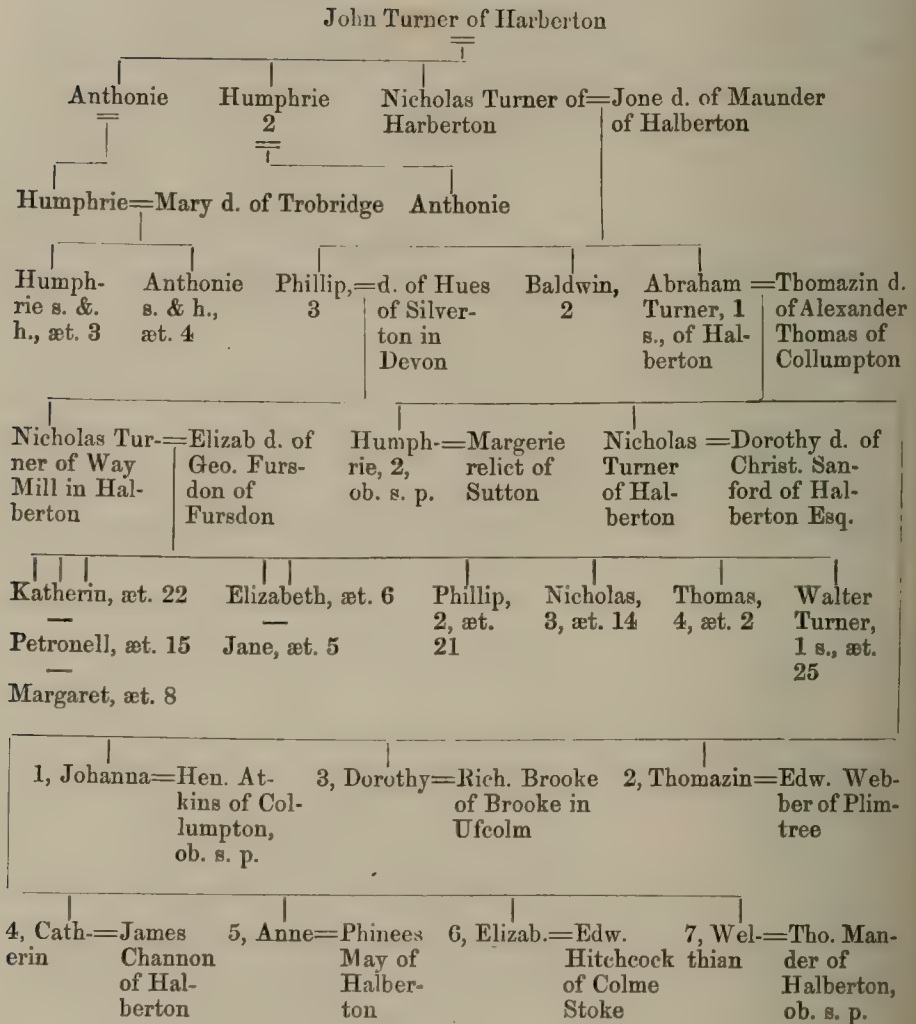 John Turner of Harberton
Anthonie
Humphrie
2
Nicholas Turner of=Jone d. of Maunder
Harberton
of Halberton
Humphrie=Mary d. of Trobridge
Anthonie
Humph-
rie s. &.
h., æt. 3
Anthonie
s. & h.,
æt. 4
Phillip,=d. of Hues
3
of Silver-
ton in
Devon
Baldwin,
2
Abraham =Thomazin d.
Turner, 1
s., of Hal-
berton
of Alexander
Thomas of
Collumpton
Nicholas Tur-=Elizab d. of
ner of Way
Mill in Hal-
berton
Geo. Furs-
don of
Fursdon
Humph-=Margerie
rie, 2,
ob. s. p.
relict of
Sutton
Nicholas =Dorothy d. of
Turner
of Hal-
berton
Christ. San-
ford of Hal-
berton Esq.
Katherin, æt. 22
Petronell, æt. 15
Margaret, æt. 8
Elizabeth, æt. 6
Jane, æt. 5
Phillip,
2, æt.
21
Nicholas,
3, æt. 14
Thomas,
4, æt. 2
Walter
Turner,
1 s., æt.
25
1, Johanna=Hen. At-
kins of Col-
lumpton,
ob. s. p.
3, Dorothy=Rich. Brooke
of Brooke in
Ufcolm
2, Thomazin=Edw. Web-
ber of Plim-
tree
4, Cath-=James
erin
Channon
of Hal-
berton
5, Anne=Phinees
May of
Halber-
ton
6, Elizab.=Edw.
Hitchcock
of Colme
Stoke
7, Wel-=Tho. Man-
thian
der of
Halberton,
ob. s. p.